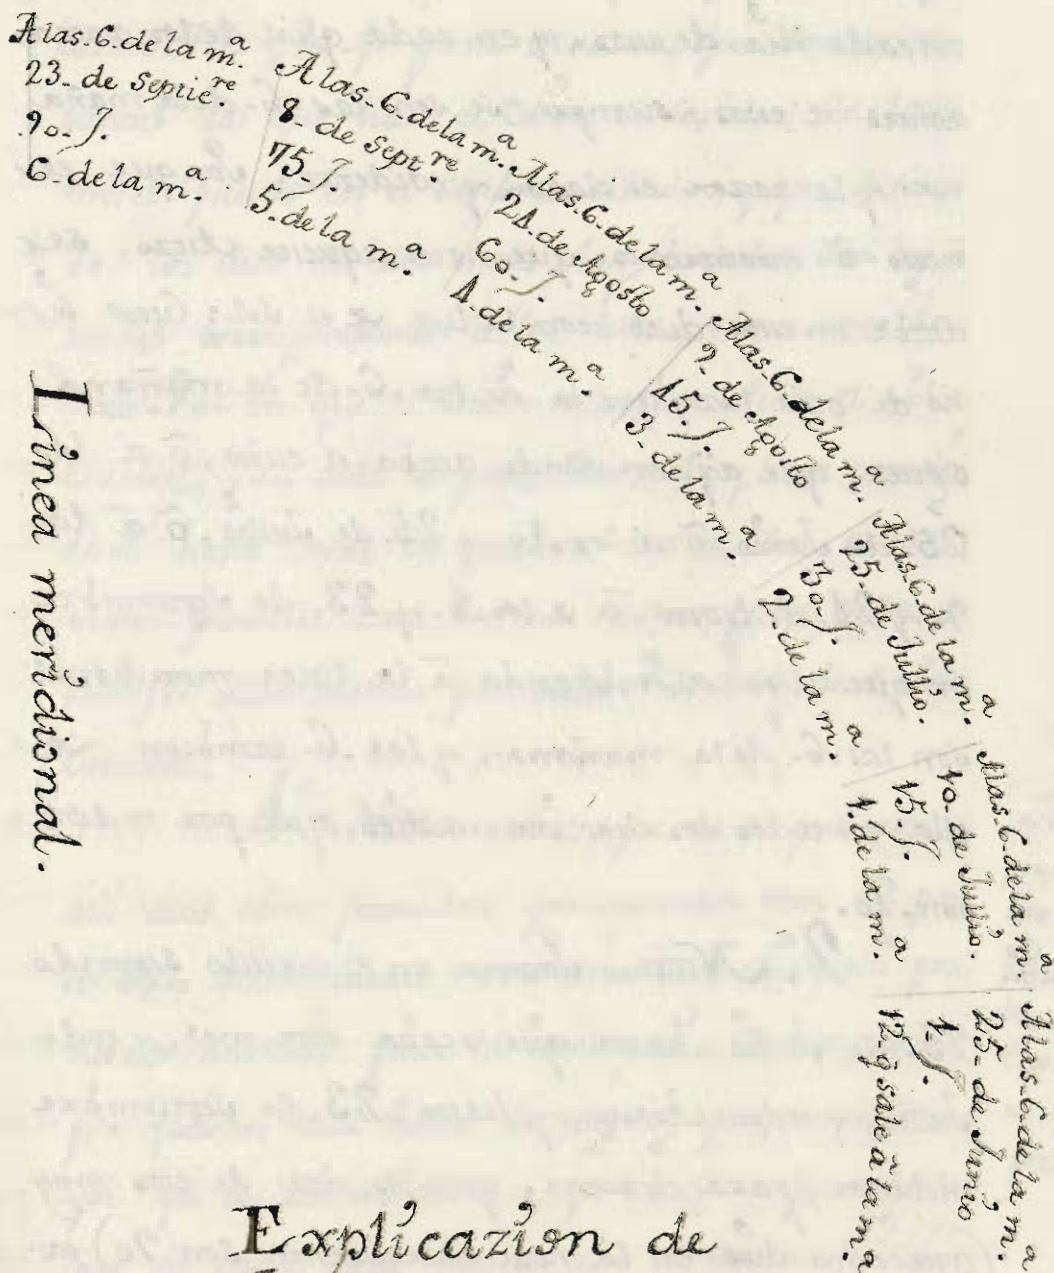 A las. 6. de la m.ª
23. de Septie.re
90. J.
6. de la m.ª
A las. 6. de la m.ª
8. de Sept.re
75. J.
5. de la m.ª
A las. 6. de la m.ª
24. de Agosto
60. J.
4. de la m.ª
A las. 6. de la m.ª
9. de Agosto
45. J.
3. de la m.ª
A las. 6. de la m.ª
25. de Jullio.
30. J.
2. de la m.ª
A las. 6. de la m.ª
10. de Jullio.
15. J.
1. de la m.ª
A las. 6. de la m.ª
25. de Junio
1. J.
12 q sale â la m.ª
Linea meridional.
Explicazion de